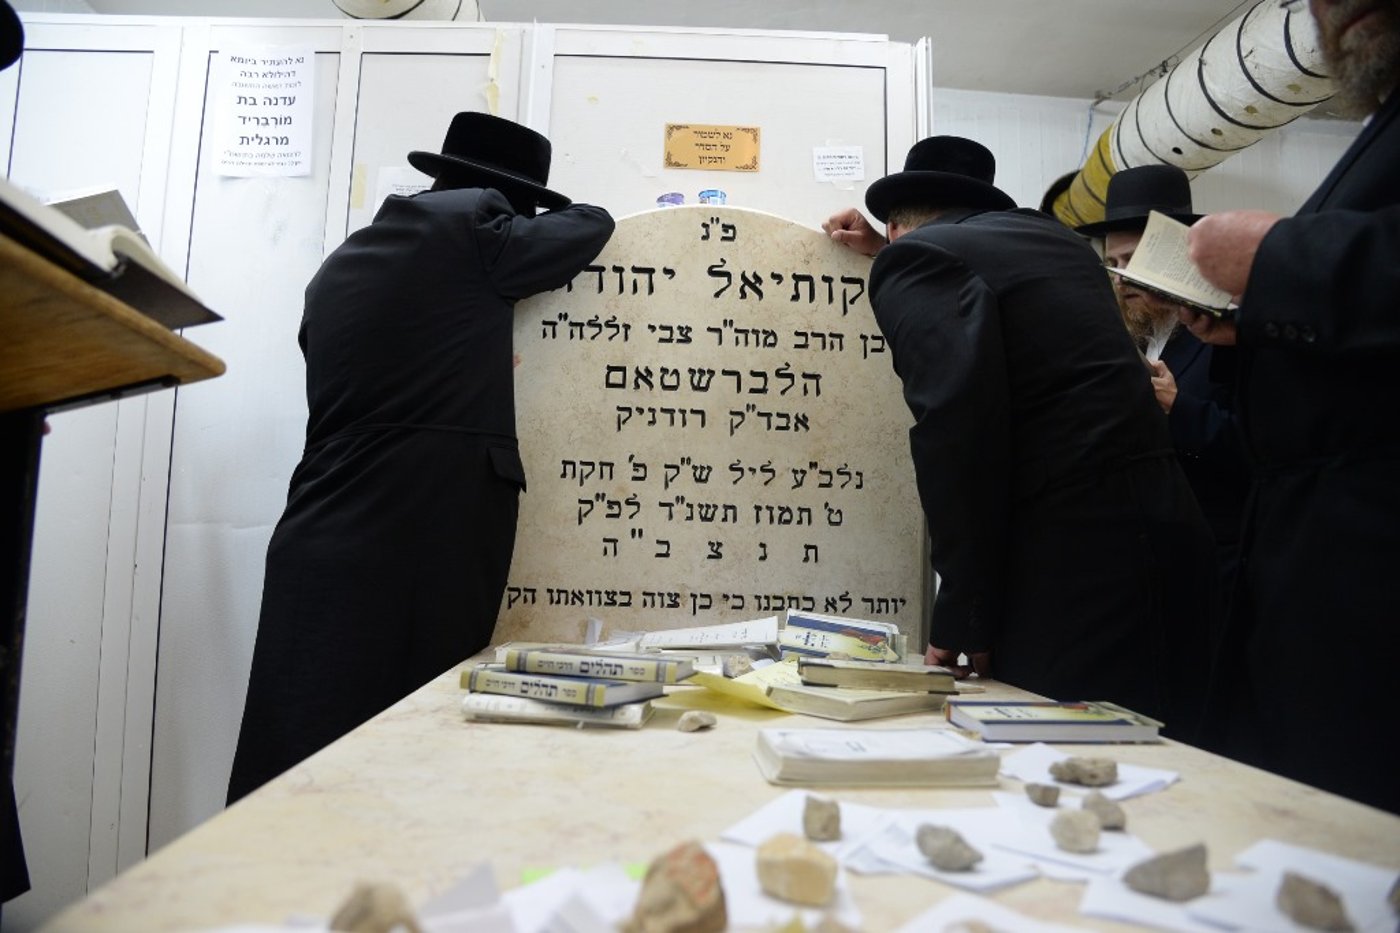 נא להעתיר ביומא
דהילולא רבה
עדנה בת
מורבריד
מרגלית
נא לשמור
על הסדר
והנקיון
פ"נ
קותיאל יהודה
בן הרב מוה"ר צבי זללה"ה
הלברשטאם
אבד"ק רודניק
נלב"ע ליל ש"ק פ' חקת
ט' תמוז תשנ"ד לפ"ק
ת נ צ ב "ה
יותר לא כתבנו כי כן צוה בצוואתו הק
ספר תהלים דרכי חיים
ספר תהלים דרכי חיים